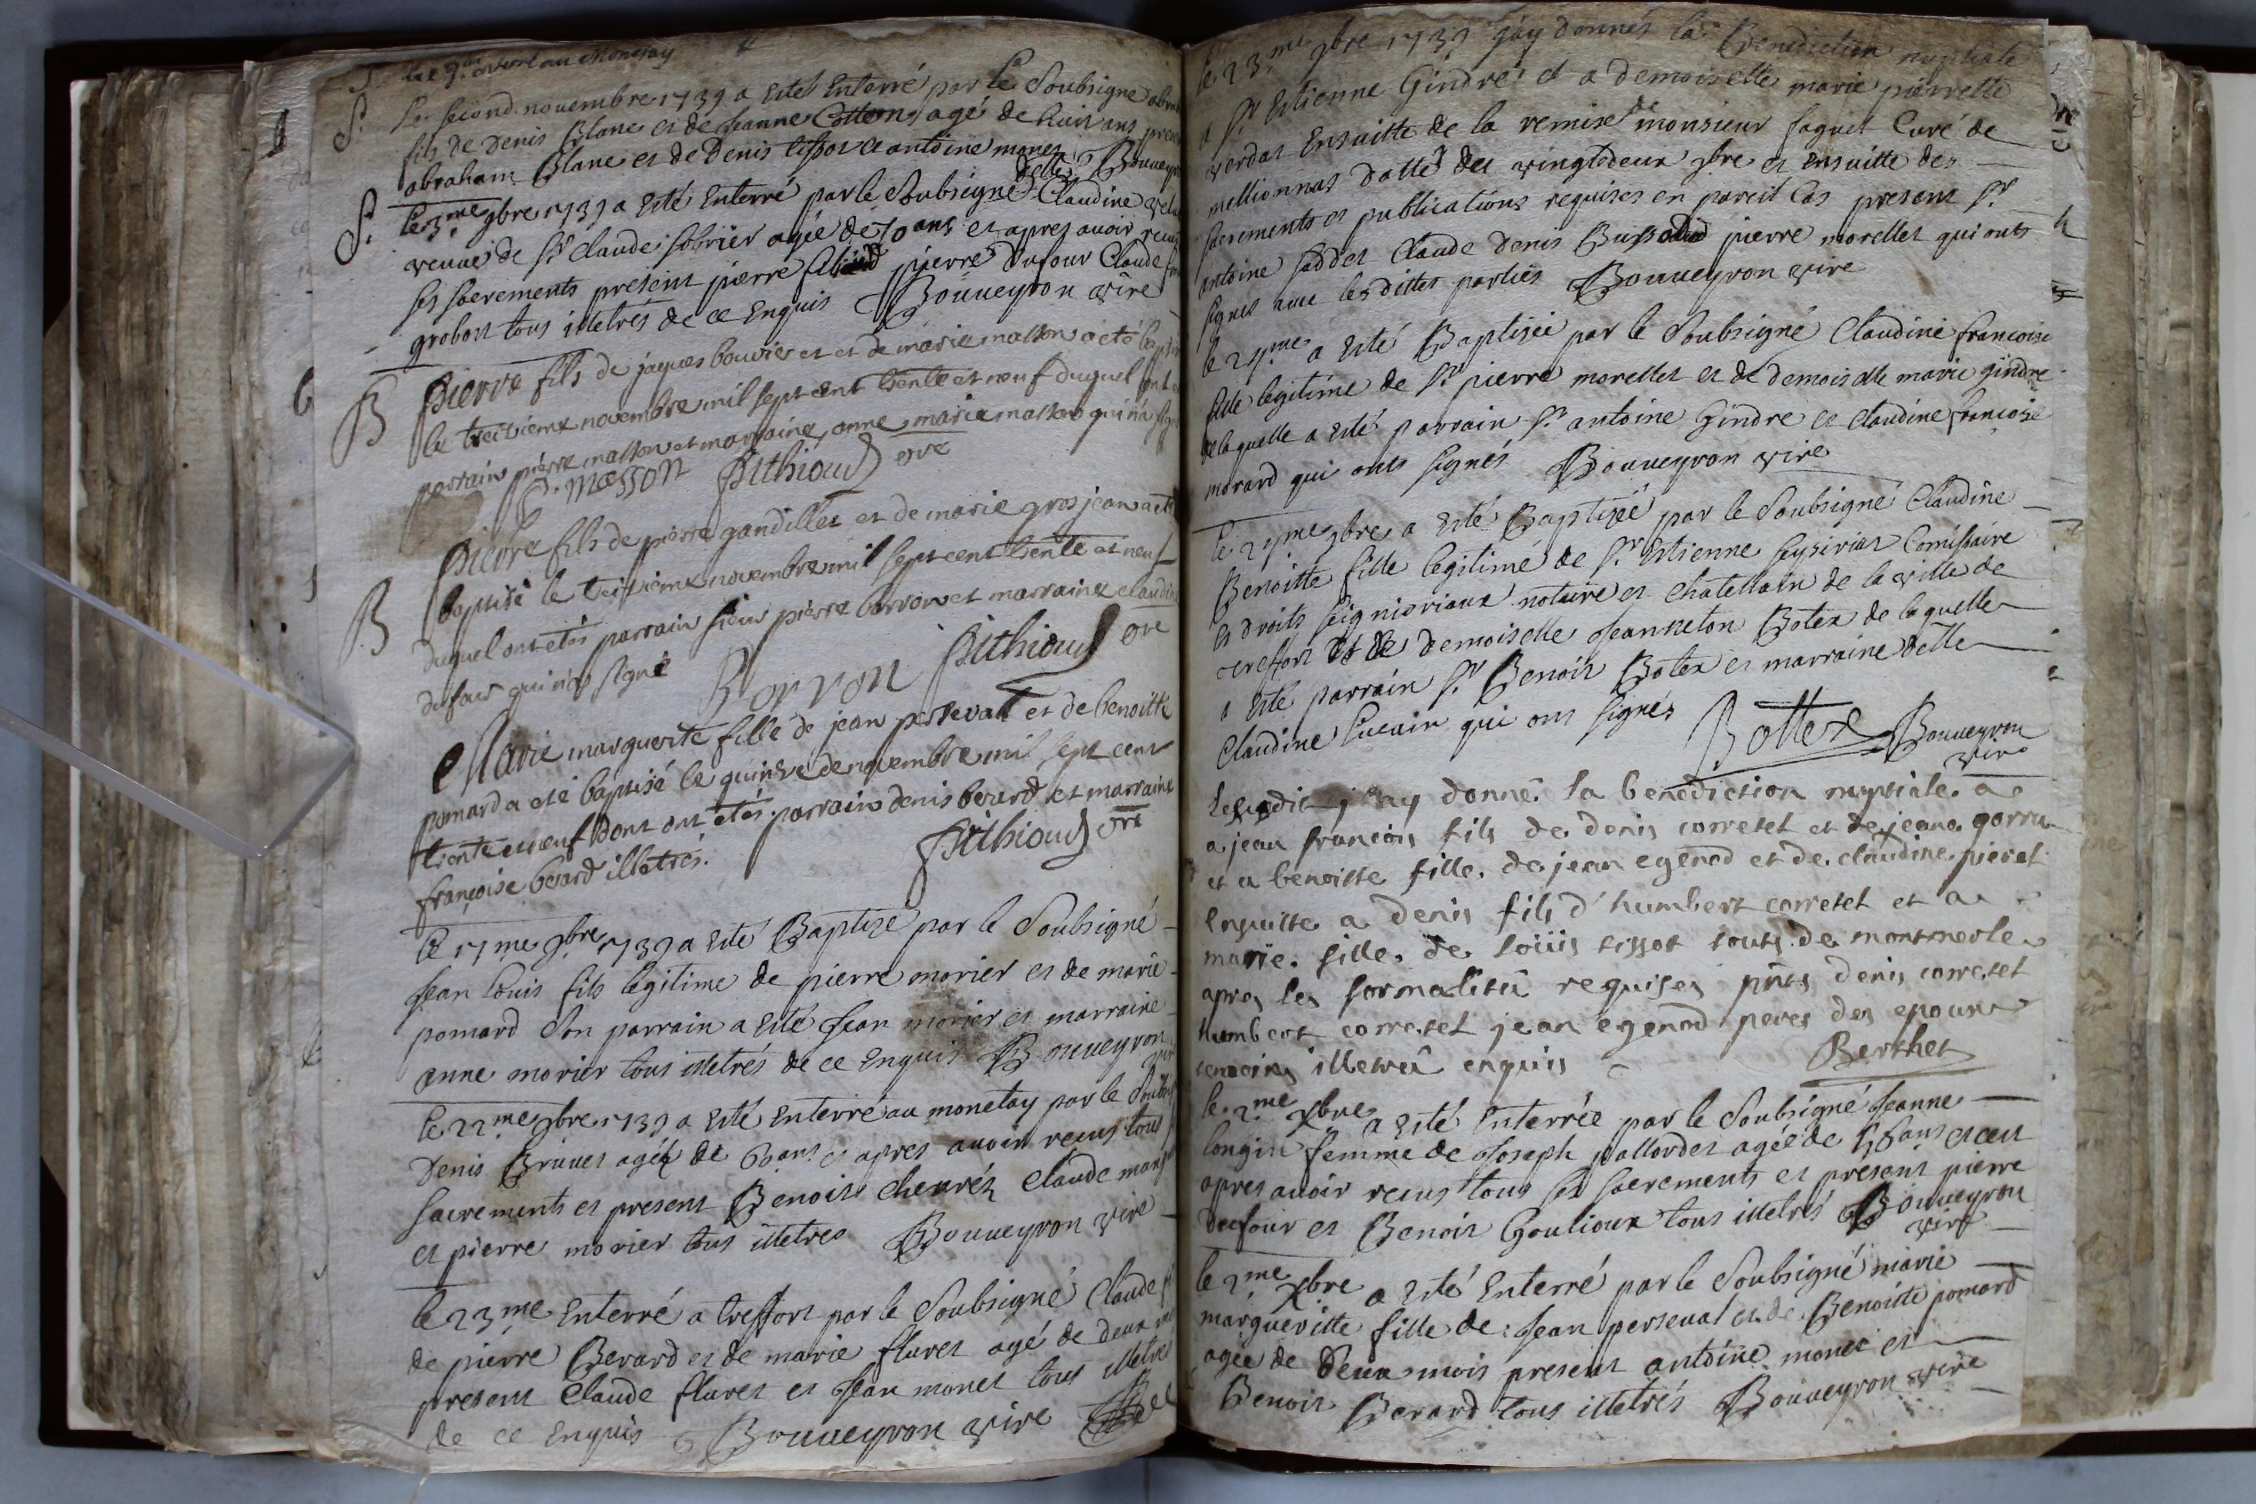 Le second novembre 1739 a esté Enterré par le Soubsigné
fils de Denis Blanc et de Jeanne Cottem agé de huit ans
abraham Blanc et de Denis tissot et antoine monet
Bouueyron
S. le 3.me 9bre 1739 a esté Enterré par le Soubsigné delle Claudine
veuve de Sr Claude sobrier agée de 70 ans et apres avoir receu
ses sacrements present pierre pierre Dufour Claude
grobost tous illetrés de ce Enquis Bouueyron vire
B Pierre fils de jaques bouvier et et de marie masson a eté
le treizieme novembre mil sept cent trente et neuf duquel
parrain pierre masson et marraine anne marie masson qui n'a
P. masson Pithioud vre
Pierre fils de pierre gandillet et de marie gros jean a eté
B baptisé le treizieme novembre mil sept cent trente et neuf
duquel ont etés parrain sieur pierre borron et marraine claudine
dufour qui n'a signé Borron Pithioud vre
Marie marguerite fille de jean perseval et de benoitte
pomard a eté baptisé le quinzé de novembre mil sept cent
trente et neuf dont ont etés parrain denis berard et marraine
françoise berard illetrés. Pithioud vre
le 17me 9bre 1739 a esté Baptizé par le Soubsigné
Jean Louis fils legitime de pierre morier et de marie
pomard Son parrain a esté Jean morier et marraine
anne morier tous illetrés de ce Enquis Bouueyron
le 22.me 9bre 1739 a esté Enterré au monetay par le
Denis Brunet agée de 60 ans et apres avoir receus tous
sacrements et present Benoist chevrés Claude
et pierre morier tous illetres Bouueyron vire
le 23me Enterré a treffort par le Soubsigné Claude
de pierre Berard et de marie fluret agé de deux
present Claude fluret et Jean monet tous illetrés
de ce Enquis Bouueyron vire
le 23.me 9bre 1739 j'ay donnés la Benediction nuptiale
a Sr Estienne Gindre et a demoiselle marie pierrette
verdat Ensuitte de la remise de monsieur faguet Curé de
mellionnas datté du vingtedeux 9bre et ensuitte des
sacrements et publications requises en pareil Cas present Sr
antoine Claude Denis pierre morellet qui onts
signes avec lesdittes parties Bouueyron vire
le 24me a esté Baptizée par le Soubsigné Claudine francoise
fille legitime de Sr pierre morellet et de demoiselle marie gindre
de laquelle a esté parrain Sr antoine Gindre et Claudine françoise
morard qui onts signés Bouueyron vire
le 27me 9bre a esté Baptizée par le Soubsigné Claudine
Benoitte fille legitime de Sr Estienne seysiriat Comissaire
es droits seignioriaux notaire et chatellain de la ville de
treffort et de demoiselle Jeanneton Botex de laquelle
a esté parrain Sr Benoit Botex et marraine delle
Claudine qui ont signés Bottex Bouueyron
vire
Lesusdit j'ay donné la benediction nuptiale a
a jean françois fils de denis corretet et de jeane
et a benoitte fille de jean egenod et de claudine pieret
ensuitte a denis fils d'humbert corretet et a
marie. fille. de loüis tissot touts de montmerle
apres les formalitû requises pñts denis corretet
humbert corretet jean egenod peres des epoux
temoins illetreû enquis Berthet
le 2.me xbre a esté Enterrée par le Soubsigné Jeanne
longin femme de Joseph pallordet agée de ans
apres avoir receus tous ses sacrements et present pierre
dufour et Benoit Goulioux tous illetrés Bouueyron
vire
le 2me xbre a esté Enterré par le Soubsigné marie
margueritte fille de Jean perseual et de Benoitte pomard
agée de deux mois present antoine monet et
Benoit Berard tous illetrés Bouueyron vire